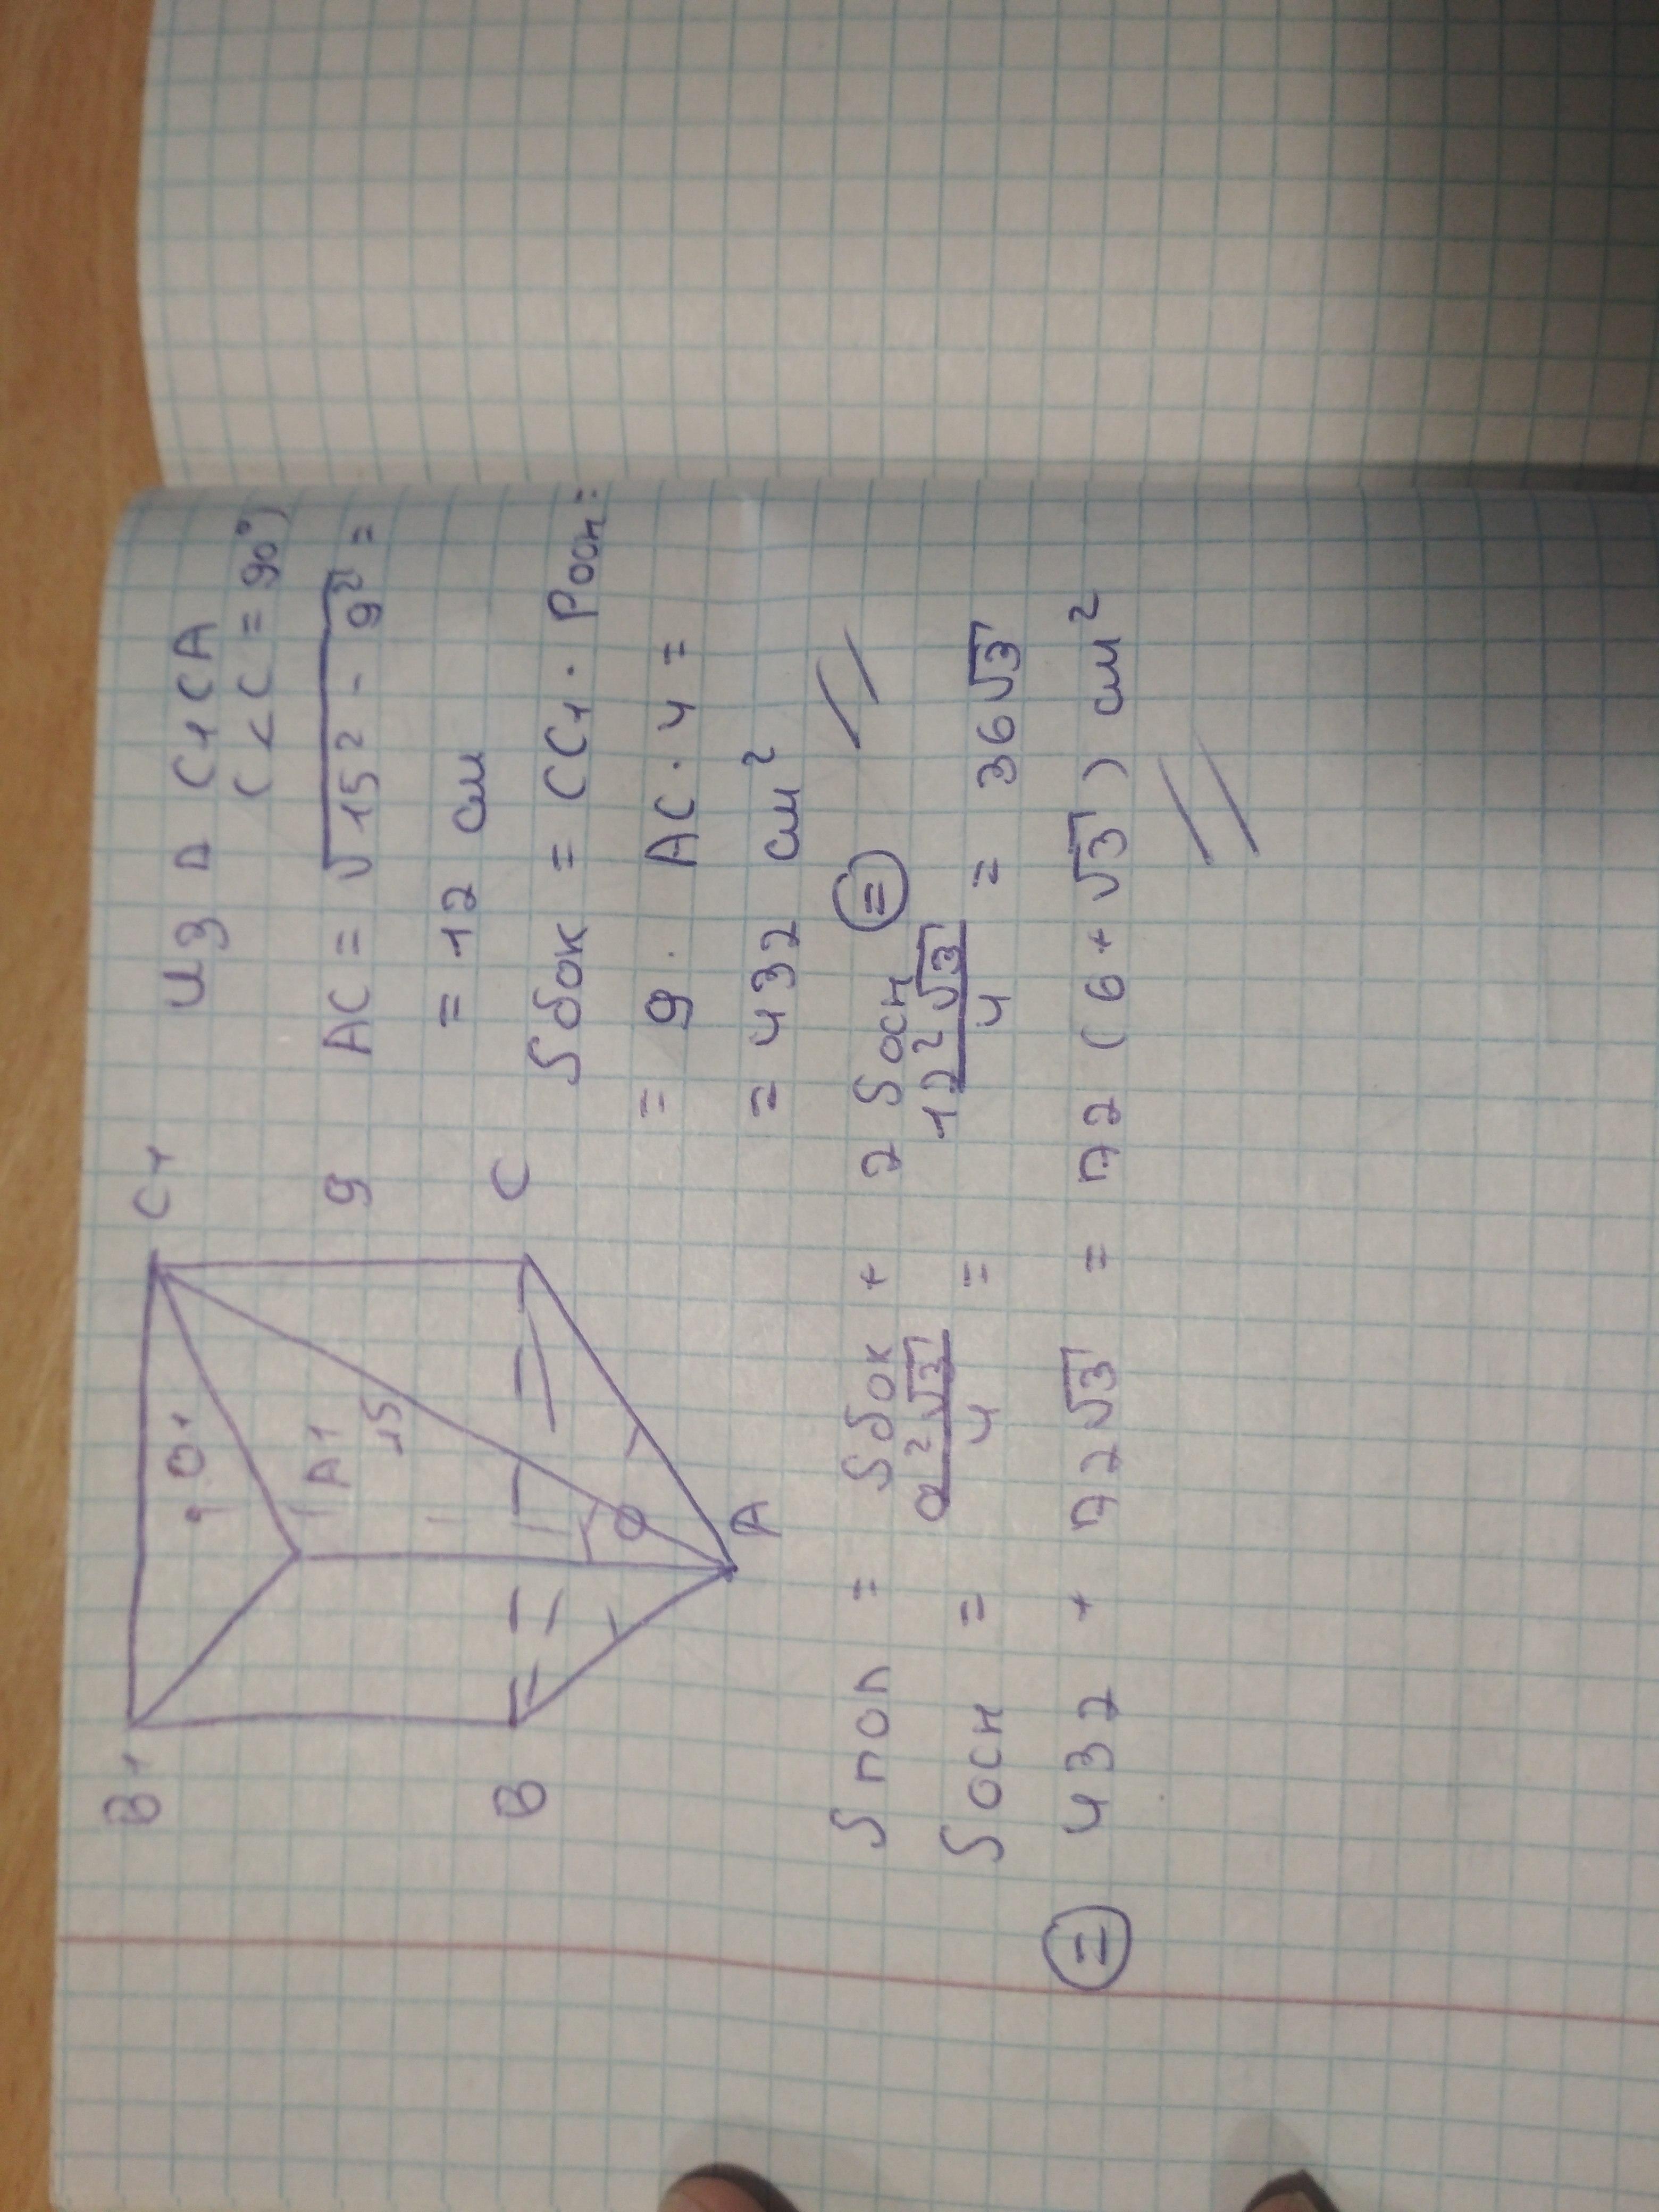 B1
C1
O1
A1
15
9
B
C
φ
A
Из Δ C1CA
(<C = 90°)
AC = √15² - 9² =
= 12 см
Sбок = CC1 · Pосн =
= 9 · AC · 4 =
= 432 см²
Sпол = Sбок + 2 Sосн =
Sосн = a²√3/4 = 12²√3/4 = 36√3
= 432 + 72√3 = 72 (6+√3) см²